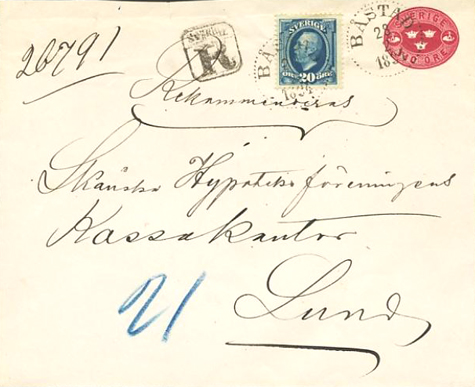 20791
SVERIGE
R
SVERIGE
20 ÖRE 20
BÅSTAD
SVERIGE
ÖRE
Rekommenderas
Skånska Hypoteksföreningens
Kassakontor
21
Lund